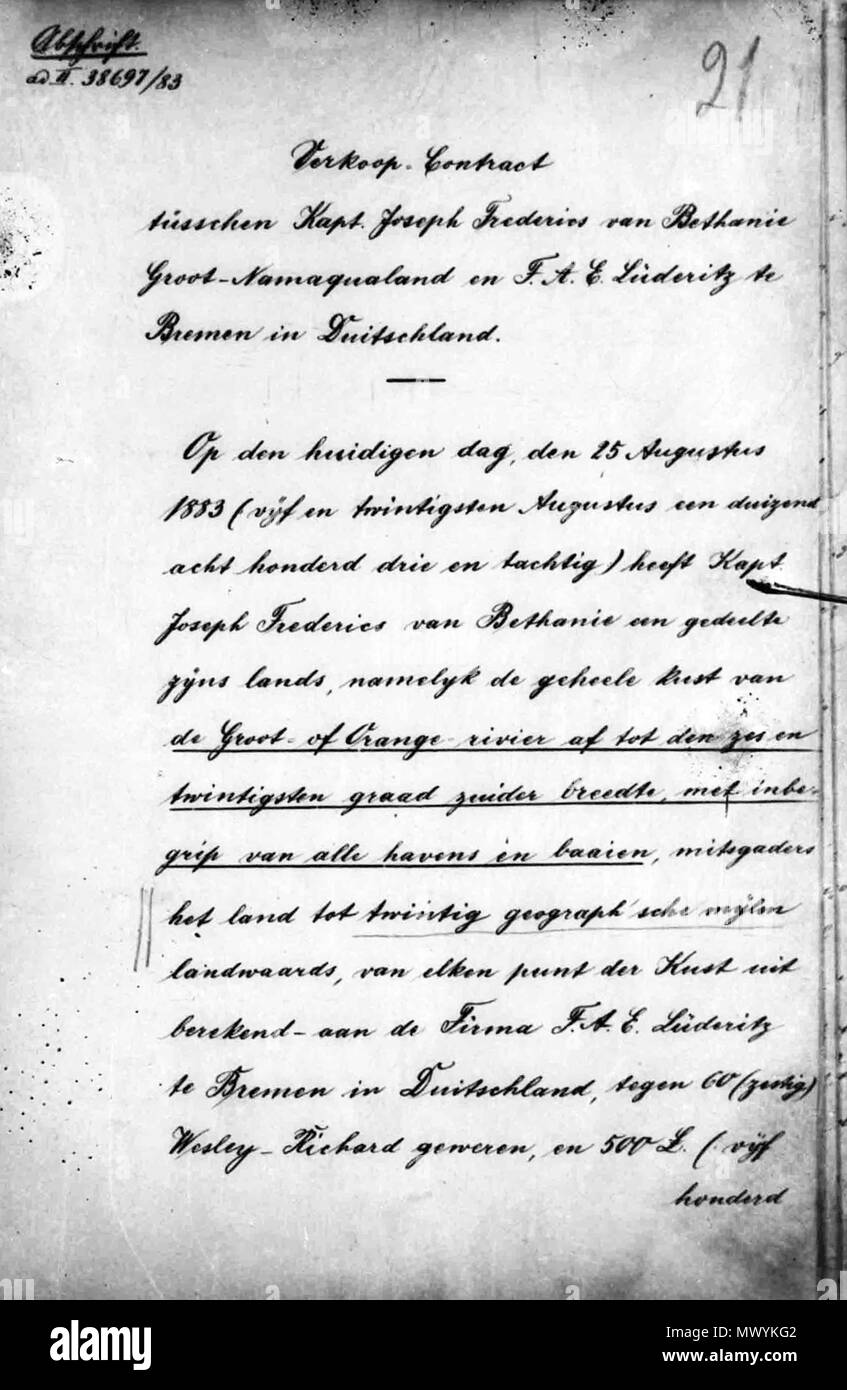 Abschrift.
ad II. 38697/83
21
Verkoop-Contract
tüsschen Kapt. Joseph Frederics van Bethanie
Groot-Namaqualand en F. A. E. Lüderitz te
Bremen in Duitschland.
Op den huidigen dag, den 25 Augustus
1883 (vÿf en twintigsten Augustus een duizend
acht honderd drie en tachtig) heeft Kapt.
Joseph Frederics van Bethanie een gedeelte
zÿns lands, namelyk de geheele kust van
de Groot- of Orange-rivier af tot den zes en
twintigsten graad zuider breedte, met inbe-
grip van alle havens en baaien, mitsgaders
het land tot twintig geograph'sche mÿlen
landwaards, van elken punt der Kust uit
berekend - aan de Firma F. A. E. Lüderitz
te Bremen in Duitschland, tegen 60 (zestig)
Wesley-Richard geweren, en 500 £. (vÿf
honderd
alamy
Image ID: MWYKG2
www.alamy.com